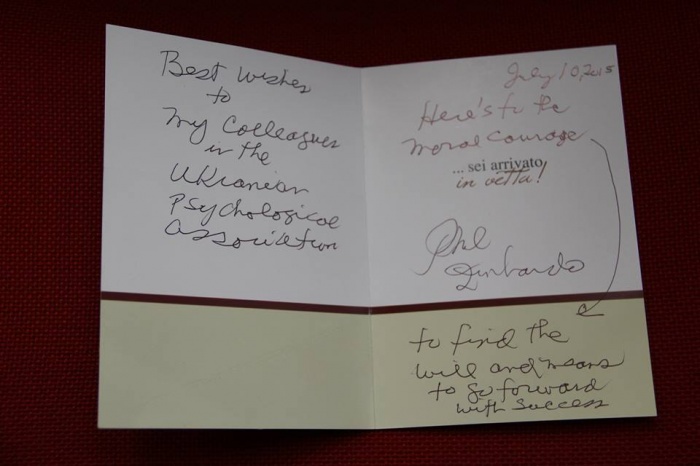 Best wishes
to
my Colleagues
in the
Ukranian
Psychological
Association
July 10, 2015
Here's to the
moral courage
... sei arrivato
in vetta!
Phil
Zimbardo
to find the
will and means
to go forward
with success